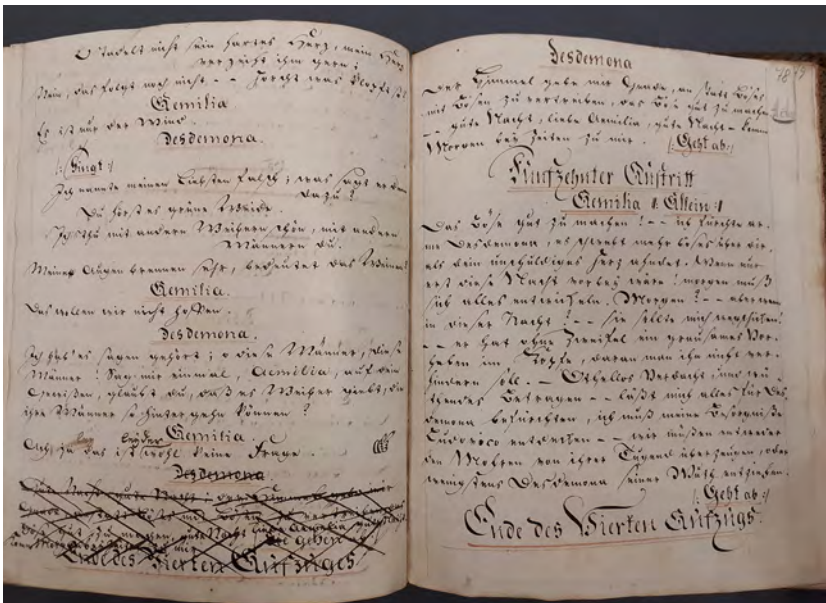 O tadelt nicht sein hartes Herz, mein Herz
verzeiht ihm gern;
Nein, das folgt noch nicht, - - Horcht was klopft da?
Aemilia
Es ist nur der Wind.
Desdemona.
/: Singt :/
Ich nannte meinen Liebsten falsch; was sagt er denn
dazu?
Du hörst es grüne Weide.
Ich thu mit andern Weibern schön, mit andern
Männern du.
Meine Augen brennen sehr, bedeutet das Weinen?
Aemilia.
Das wollen wir nicht hoffen.
Desdemona.
Ich hab' es sagen gehört; o diese Männer, diese
Männer! Sag mir einmal, Aemilia, auf dein
Gewissen, glaubst du, daß es Weiber giebt, die
ihre Männer so hintergehn können?
leyder Aemilia.
Ach, ja das ist wohl keine Frage.
Desdemona
Gute Nacht, gute Nacht; der Himmel gebe mir
gute Nacht Aemilia gute Nacht
Sie gehen ab
Ende des Vierten Aufzuges
Desdemona
Der Himmel gebe mir Gnade, an statt Böses
mit Bösen zu vertreiben, das Böse gut zu machen
- - gute Nacht, liebe Aemilia, gute Nacht - komm
Morgen bey Zeiten zu mir. /: Geht ab :/
Funfzehnter Auftritt
Aemilia Allein :/
Das Böse gut zu machen! - - ich fürchte ar-
me Desdemona, es schwebt mehr böses über dir,
als dein unschuldiges Herz ahndet. Wenn nur
erst diese Nacht vorbey wäre! morgen muß
sich alles entwickeln. Morgen? - - aber wenn
in dieser Nacht? - - sie sollte mich wegschicken!
- - er hat ohne Zweifel ein grausames Vor-
haben im Kopfe, daran man ihn nicht ver-
hindern soll. - Othellos Verdacht, und wü-
thendes Betragen - - läßt mich alles für Des-
demona befürchten, ich muß meine Besorgniße
Ludovico entdecken - - wir müßen entweder
den Mohren von ihrer Tugend überzeugen, oder
wenigstens Desdemona seiner Wuth entziehen.
/: Geht ab :/
Ende des Vierten Aufzugs.